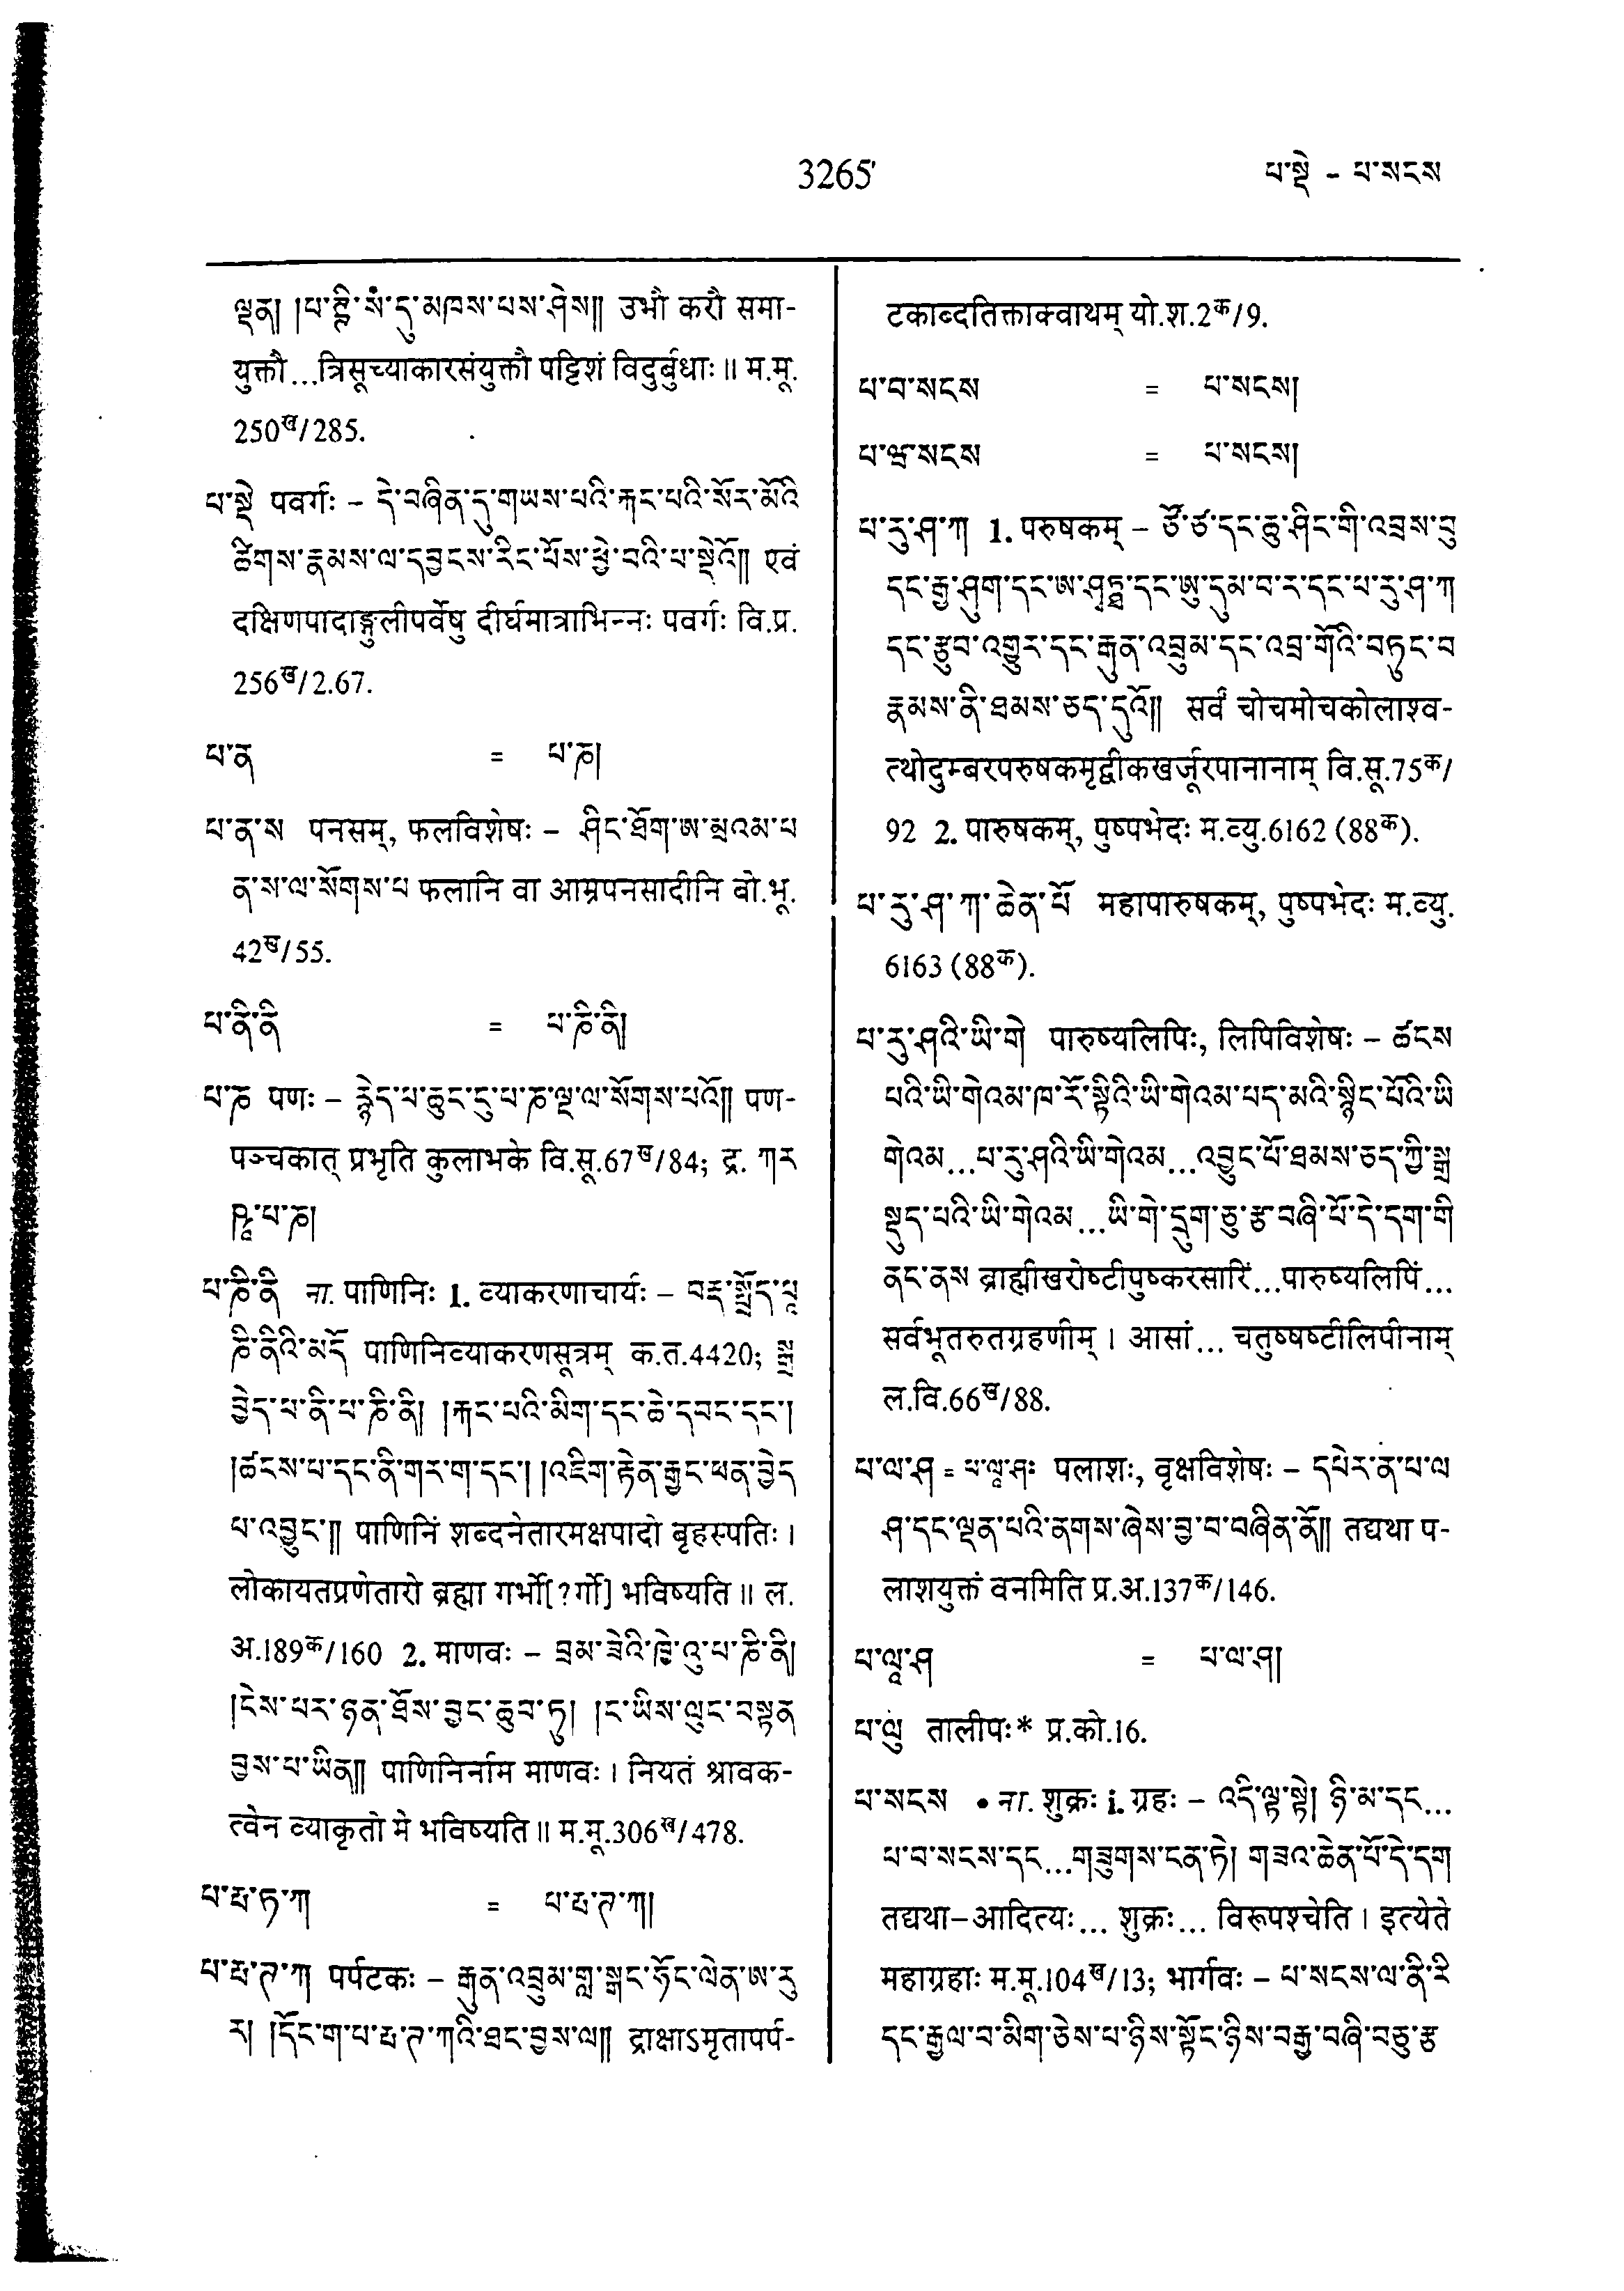 3265
པ་སྡེ - པ་སངས
ལྡན། །པ་ཊྚི་སཾ་དུ་མཁས་པས་ཤེས།། उभौ करौ समा-
युक्तौ...त्रिसूच्याकारसंयुक्तौ पट्टिशं विदुर्बुधाः ॥ म.मू.
250ख/285.
པ་སྡེ पवर्गः – དེ་བཞིན་དུ་གཡས་པའི་རྐང་པའི་སོར་མོའི
ཚིགས་རྣམས་ལ་དབྱངས་རིང་པོས་ཕྱེ་བའི་པ་སྡེའོ།། एवं
दक्षिणपादाङ्गुलीपर्वेषु दीर्घमात्राभिन्नः पवर्गः वि.प्र.
256ख/2.67.
པ་ན = པ་ཎ།
པ་ན་ས पनसम्, फलविशेषः – ཤིང་ཐོག་ཨ་མྲའམ་པ
ན་ས་ལ་སོགས་པ फलानि वा आम्रपनसादीनि बो.भू.
42ख/55.
པ་ནི་ནི = པ་ཎི་ནི།
པ་ཎ पणः – རྙེད་པ་ཆུང་ངུ་པ་ཎ་ལྔ་ལ་སོགས་པའོ།། पण-
पञ्चकात् प्रभृति कुलाभके वि.सू.67ख/84; द्र. ཀར
ཥཱ་པ་ཎ།
པ་ཎི་ནི ना. पाणिनिः 1. व्याकरणाचार्यः – བརྡ་སྤྲོད་པཱ
ཎི་ནིའི་མདོ पाणिनिव्याकरणसूत्रम् क.त.4420; སྒྲ
བྱེད་པ་ནི་པ་ཎི་ནི། །རྐང་པའི་མིག་དང་ཆེ་དབང་དང་།
།ཚངས་པ་དང་ནི་གར་ག་དང་། །འཇིག་རྟེན་རྒྱང་ཕན་བྱེད
པ་འབྱུང་།། पाणिनिं शब्दनेतारमक्षपादो बृहस्पतिः ।
लोकायतप्रणेतारो ब्रह्मा गर्भो[?र्गो] भविष्यति ॥ ल.
अ.189क/160 2. माणवः – བྲམ་ཟེའི་ཁྱེའུ་པ་ཎི་ནི།
།ངེས་པར་ཉན་ཐོས་བྱང་ཆུབ་ཏུ། །ང་ཡིས་ལུང་བསྟན
བྱས་པ་ཡིན།། पाणिनिर्नाम माणवः । नियतं श्रावक-
त्वेन व्याकृतो मे भविष्यति ॥ म.मू.306ख/478.
པ་རྤ་ཏ་ཀ། = པ་རྤ་ཊ་ཀ།
པ་རྤ་ཊ་ཀ། पर्पटकः – རྒུན་འབྲུམ་གླ་སྒང་ཧོང་ལེན་ཨ་རུ
ར། །དོང་ག་པ་རྤ་ཊ་ཀའི་ཐང་བྱས་ལ།། द्राक्षाऽमृतापर्प-
टकाब्दतिक्ताक्वाथम् यो.श.2क/9.
པ་བ་སངས = པ་སངས།
པ་ཝ་སངས = པ་སངས།
པ་རུ་ཤ་ཀ 1. परुषकम् – ཙོ་ཙ་དང་ཆུ་ཤིང་གི་འབྲས་བུ
དང་རྒྱ་ཤུག་དང་ཨ་ཤྭཏྠ་དང་ཨུ་དུམ་བ་ར་དང་པ་རུ་ཤ་ཀ
དང་རྩུབ་འགྱུར་དང་རྒུན་འབྲུམ་དང་འབྲ་གོའི་བཏུང་བ
རྣམས་ནི་ཐམས་ཅད་དུའོ།། सर्वं चोचमोचकोलाश्व-
त्थोदुम्बरपरुषकमृद्वीकखर्जूरपानानाम् वि.सू.75क/
92 2. पारुषकम्, पुष्पभेदः म.व्यु.6162 (88क).
པ་རུ་ཤ་ཀ་ཆེན་པོ महापारुषकम्, पुष्पभेदः म.व्यु.
6163 (88क).
པ་རུ་ཤའི་ཡི་གེ पारुष्यलिपिः, लिपिविशेषः – ཚངས
པའི་ཡི་གེའམ་ཁ་རོ་སྟིའི་ཡི་གེའམ་པད་མའི་སྙིང་པོའི་ཡི
གེའམ...པ་རུ་ཤའི་ཡི་གེའམ...འབྱུང་པོ་ཐམས་ཅད་ཀྱི་སྒྲ
སྡུད་པའི་ཡི་གེའམ...ཡི་གེ་དྲུག་ཅུ་རྩ་བཞི་པོ་དེ་དག་གི
ནང་ནས ब्राह्मीखरोष्टीपुष्करसारिं...पारुष्यलिपिं...
सर्वभूतरुतग्रहणीम् । आसां... चतुष्षष्टीलिपीनाम्
ल.वि.66ख/88.
པ་ལ་ཤ = པ་ལཱ་ཤः पलाशः, वृक्षविशेषः – དཔེར་ན་པ་ལ
ཤ་དང་ལྡན་པའི་ནགས་ཞེས་བྱ་བ་བཞིན་ནོ།། तद्यथा प-
लाशयुक्तं वनमिति प्र.अ.137क/146.
པ་ལཱ་ཤ = པ་ལ་ཤ།
པ་ལུ तालीपः* प्र.को.16.
པ་སངས • ना. शुक्रः i. ग्रहः – འདི་ལྟ་སྟེ། ཉི་མ་དང...
པ་བ་སངས་དང...གཟུགས་ངན་ཏེ། གཟའ་ཆེན་པོ་དེ་དག
तद्यथा–आदित्यः... शुक्रः... विरूपश्चेति । इत्येते
महाग्रहाः म.मू.104ख/13; भार्गवः – པ་སངས་ལ་ནི་རི
དང་རྒྱལ་བ་མིག་ཅེས་པ་ཉིས་སྟོང་ཉིས་བརྒྱ་བཞི་བཅུ་རྩ